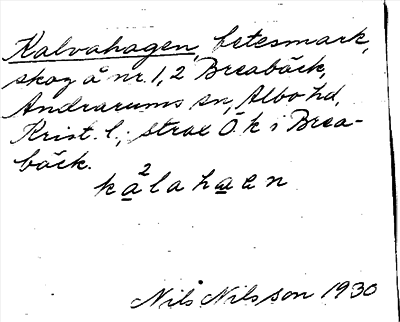 Kalvahagen, betesmark,
skog å nr. 1, 2 Breabäck,
Andrarums sn, Albo hd,
Krist. l.; strax Ö. k i Brea-
bäck.
ka²lahaen
Nils Nilsson 1930